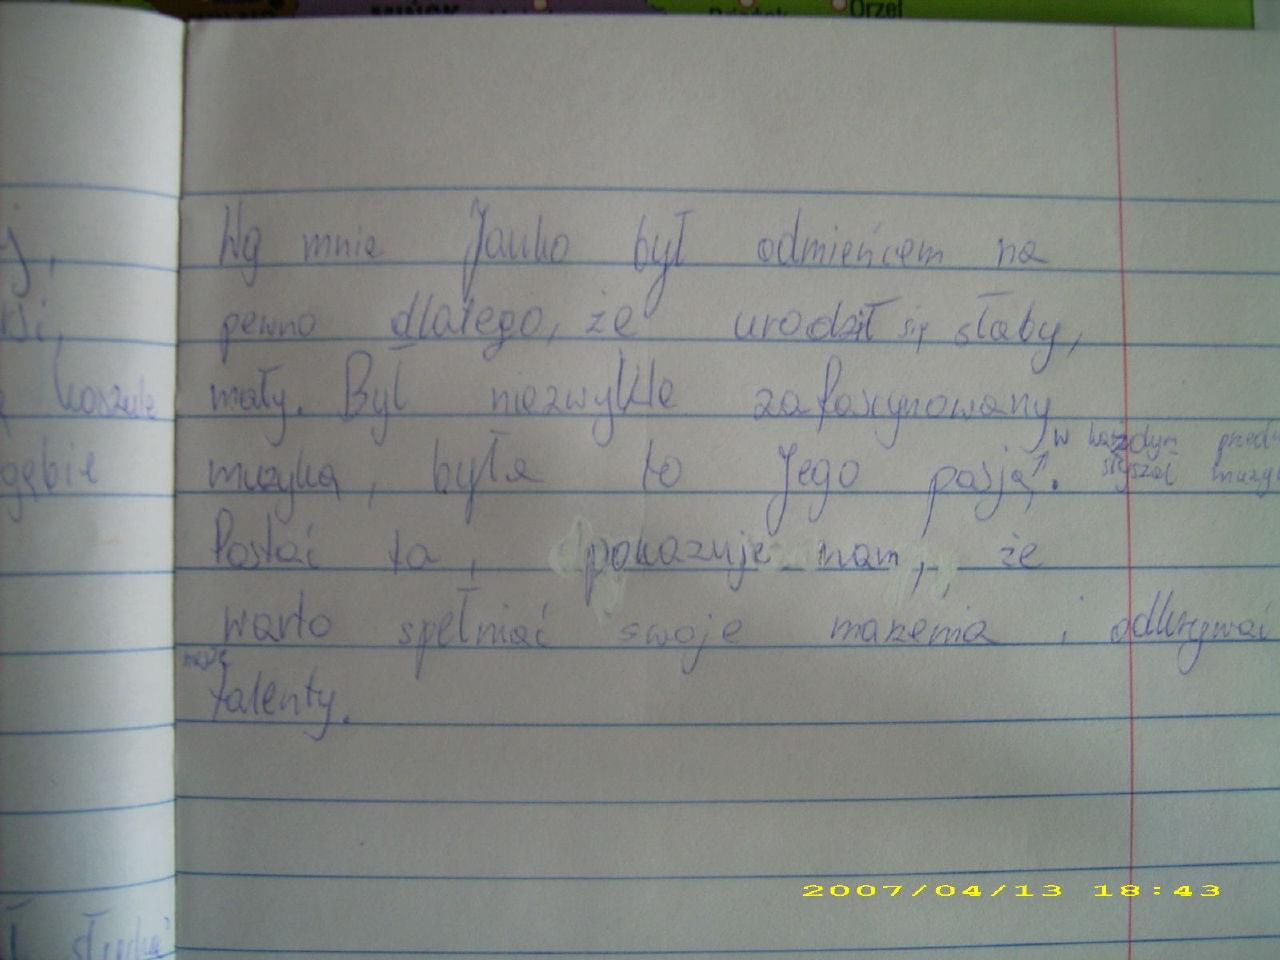 MIŃSK
Orzeł
Wg mnie Janko był odmieńcem na
pewno dlatego, że urodził się słaby,
mały. Był niezwykle zafascynowany
muzyką, była to Jego pasją.
w każdym
słyszał
Postać ta, pokazuje nam, że
warto spełniać swoje marzenia i odkrywać
talenty.
koszule
gębie
2007/04/13 18:43